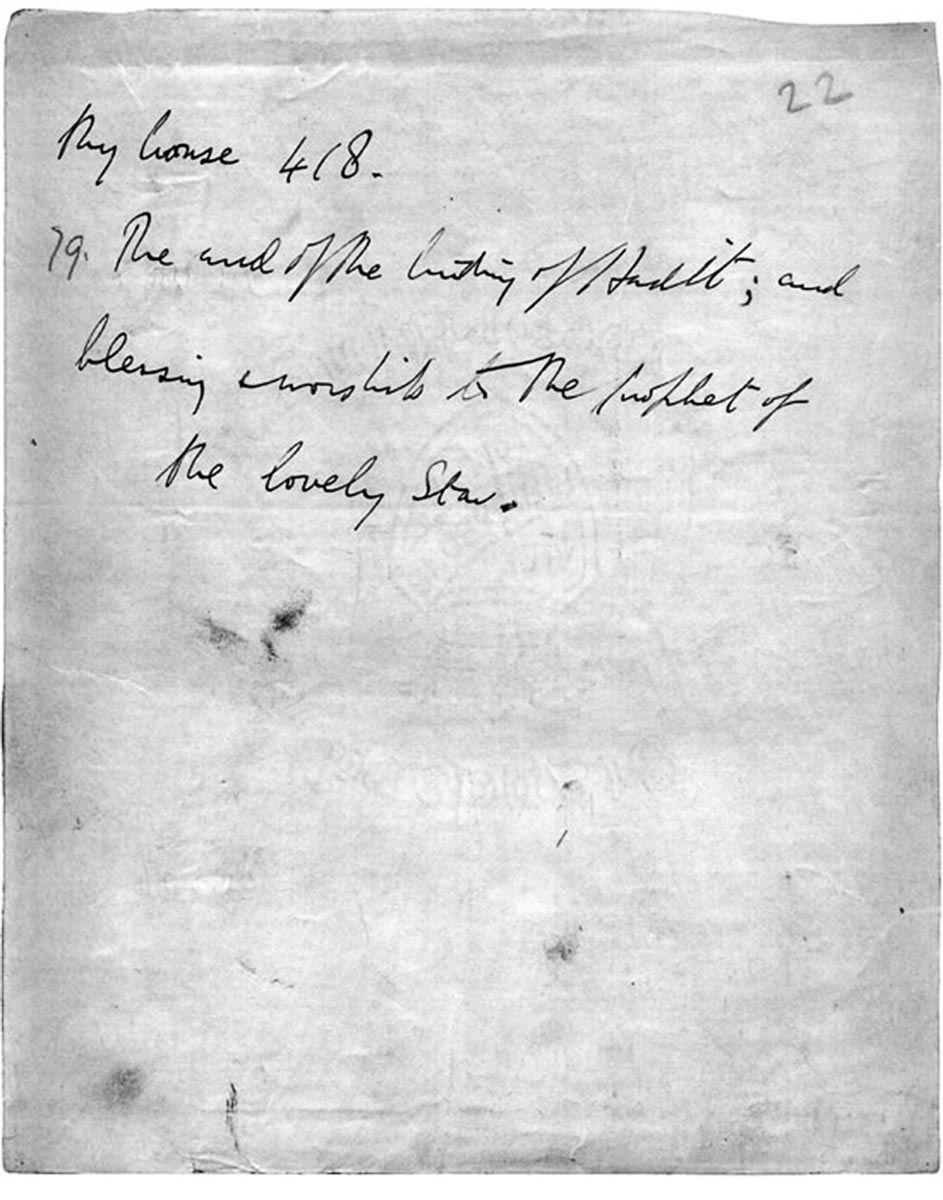 22
thy house 418.
79. The end of the hiding of Hadit; and
blessing & worship to the prophet of
the lovely Star.